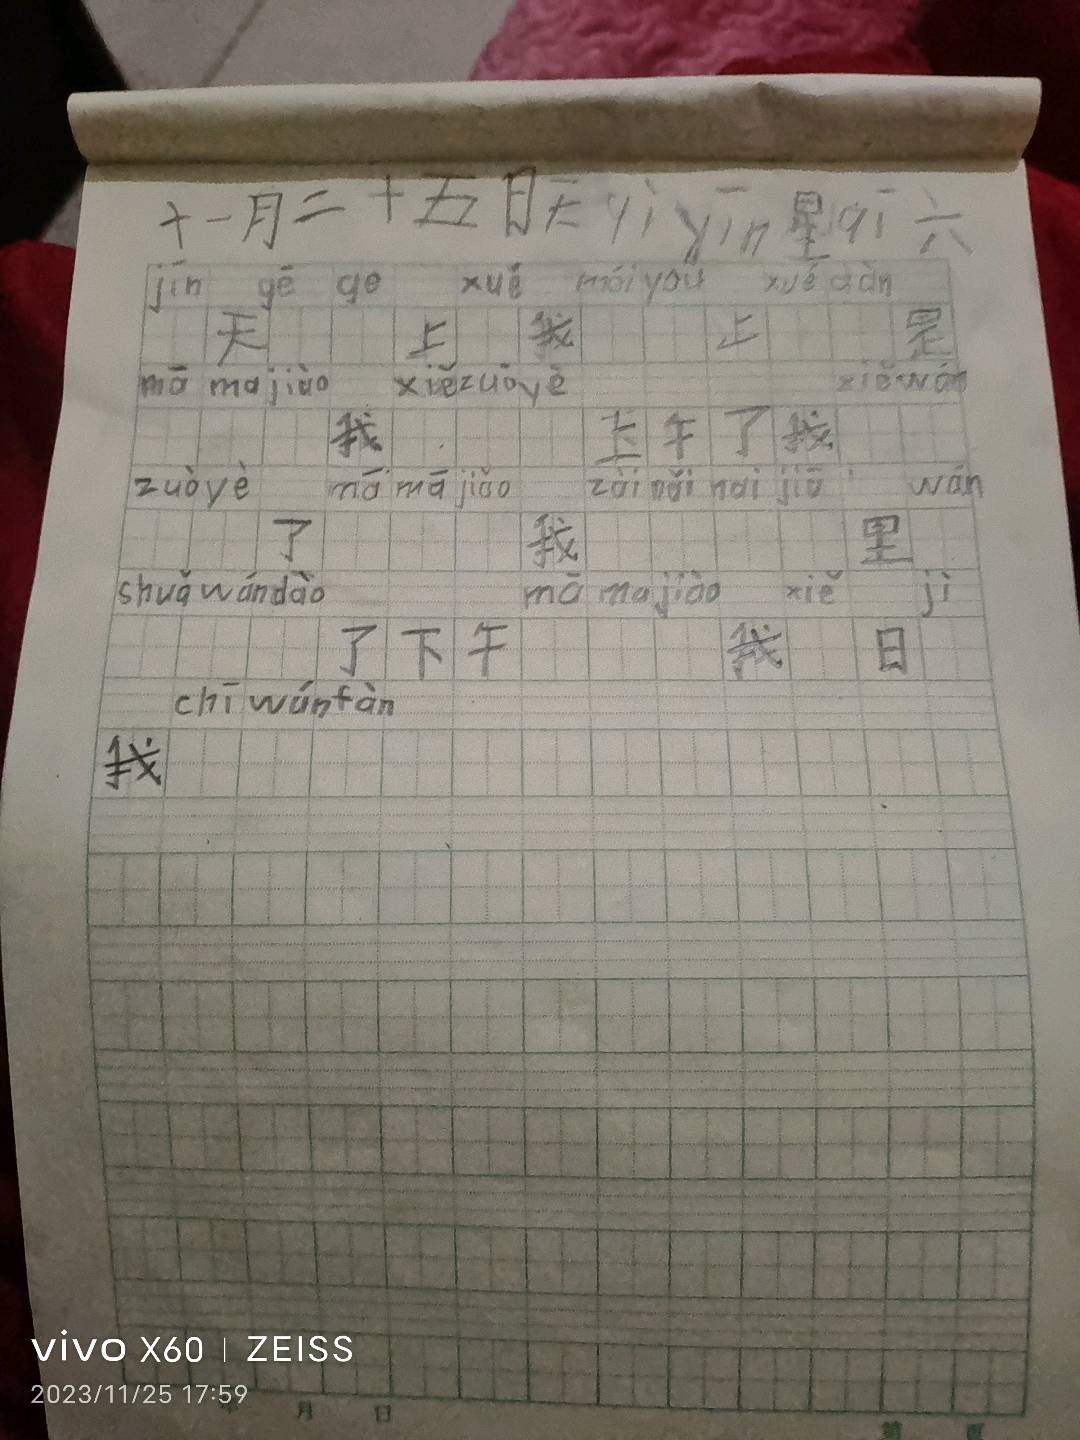 十一月二十五日天 yì yīn 星 qī 六
jīn gē ge xué méi yǒu xué dàn
天 上 我 上 是
mā ma jiào xiě zuò yè xiě wán
我 上 午 了 我
zuò yè mā mā jiǎo zài nǎi nai jiā wán
了 我 里
shuǎ wán dào mā ma jiào xiě jì
了 下 午 我 日
chī wán fàn
我
vivo X60 | ZEISS
2023/11/25 17:59
年 月 日